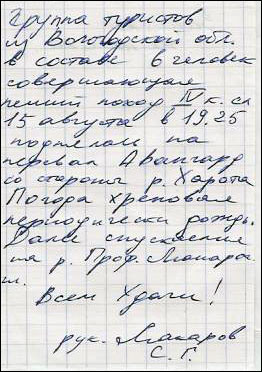 Группа туристов
из Вологодской обл.
в составе 6 человек
совершающая
пеший поход IV к. сл
15 августа в 19.25
поднялась на
перевал Авангард
со стороны р. Харота
Погода хреновая
периодически дождь.
Далее спускаемся
на р. Проф. Макара
ш.
Всем Удачи!
рук. Макаров
С. Г.